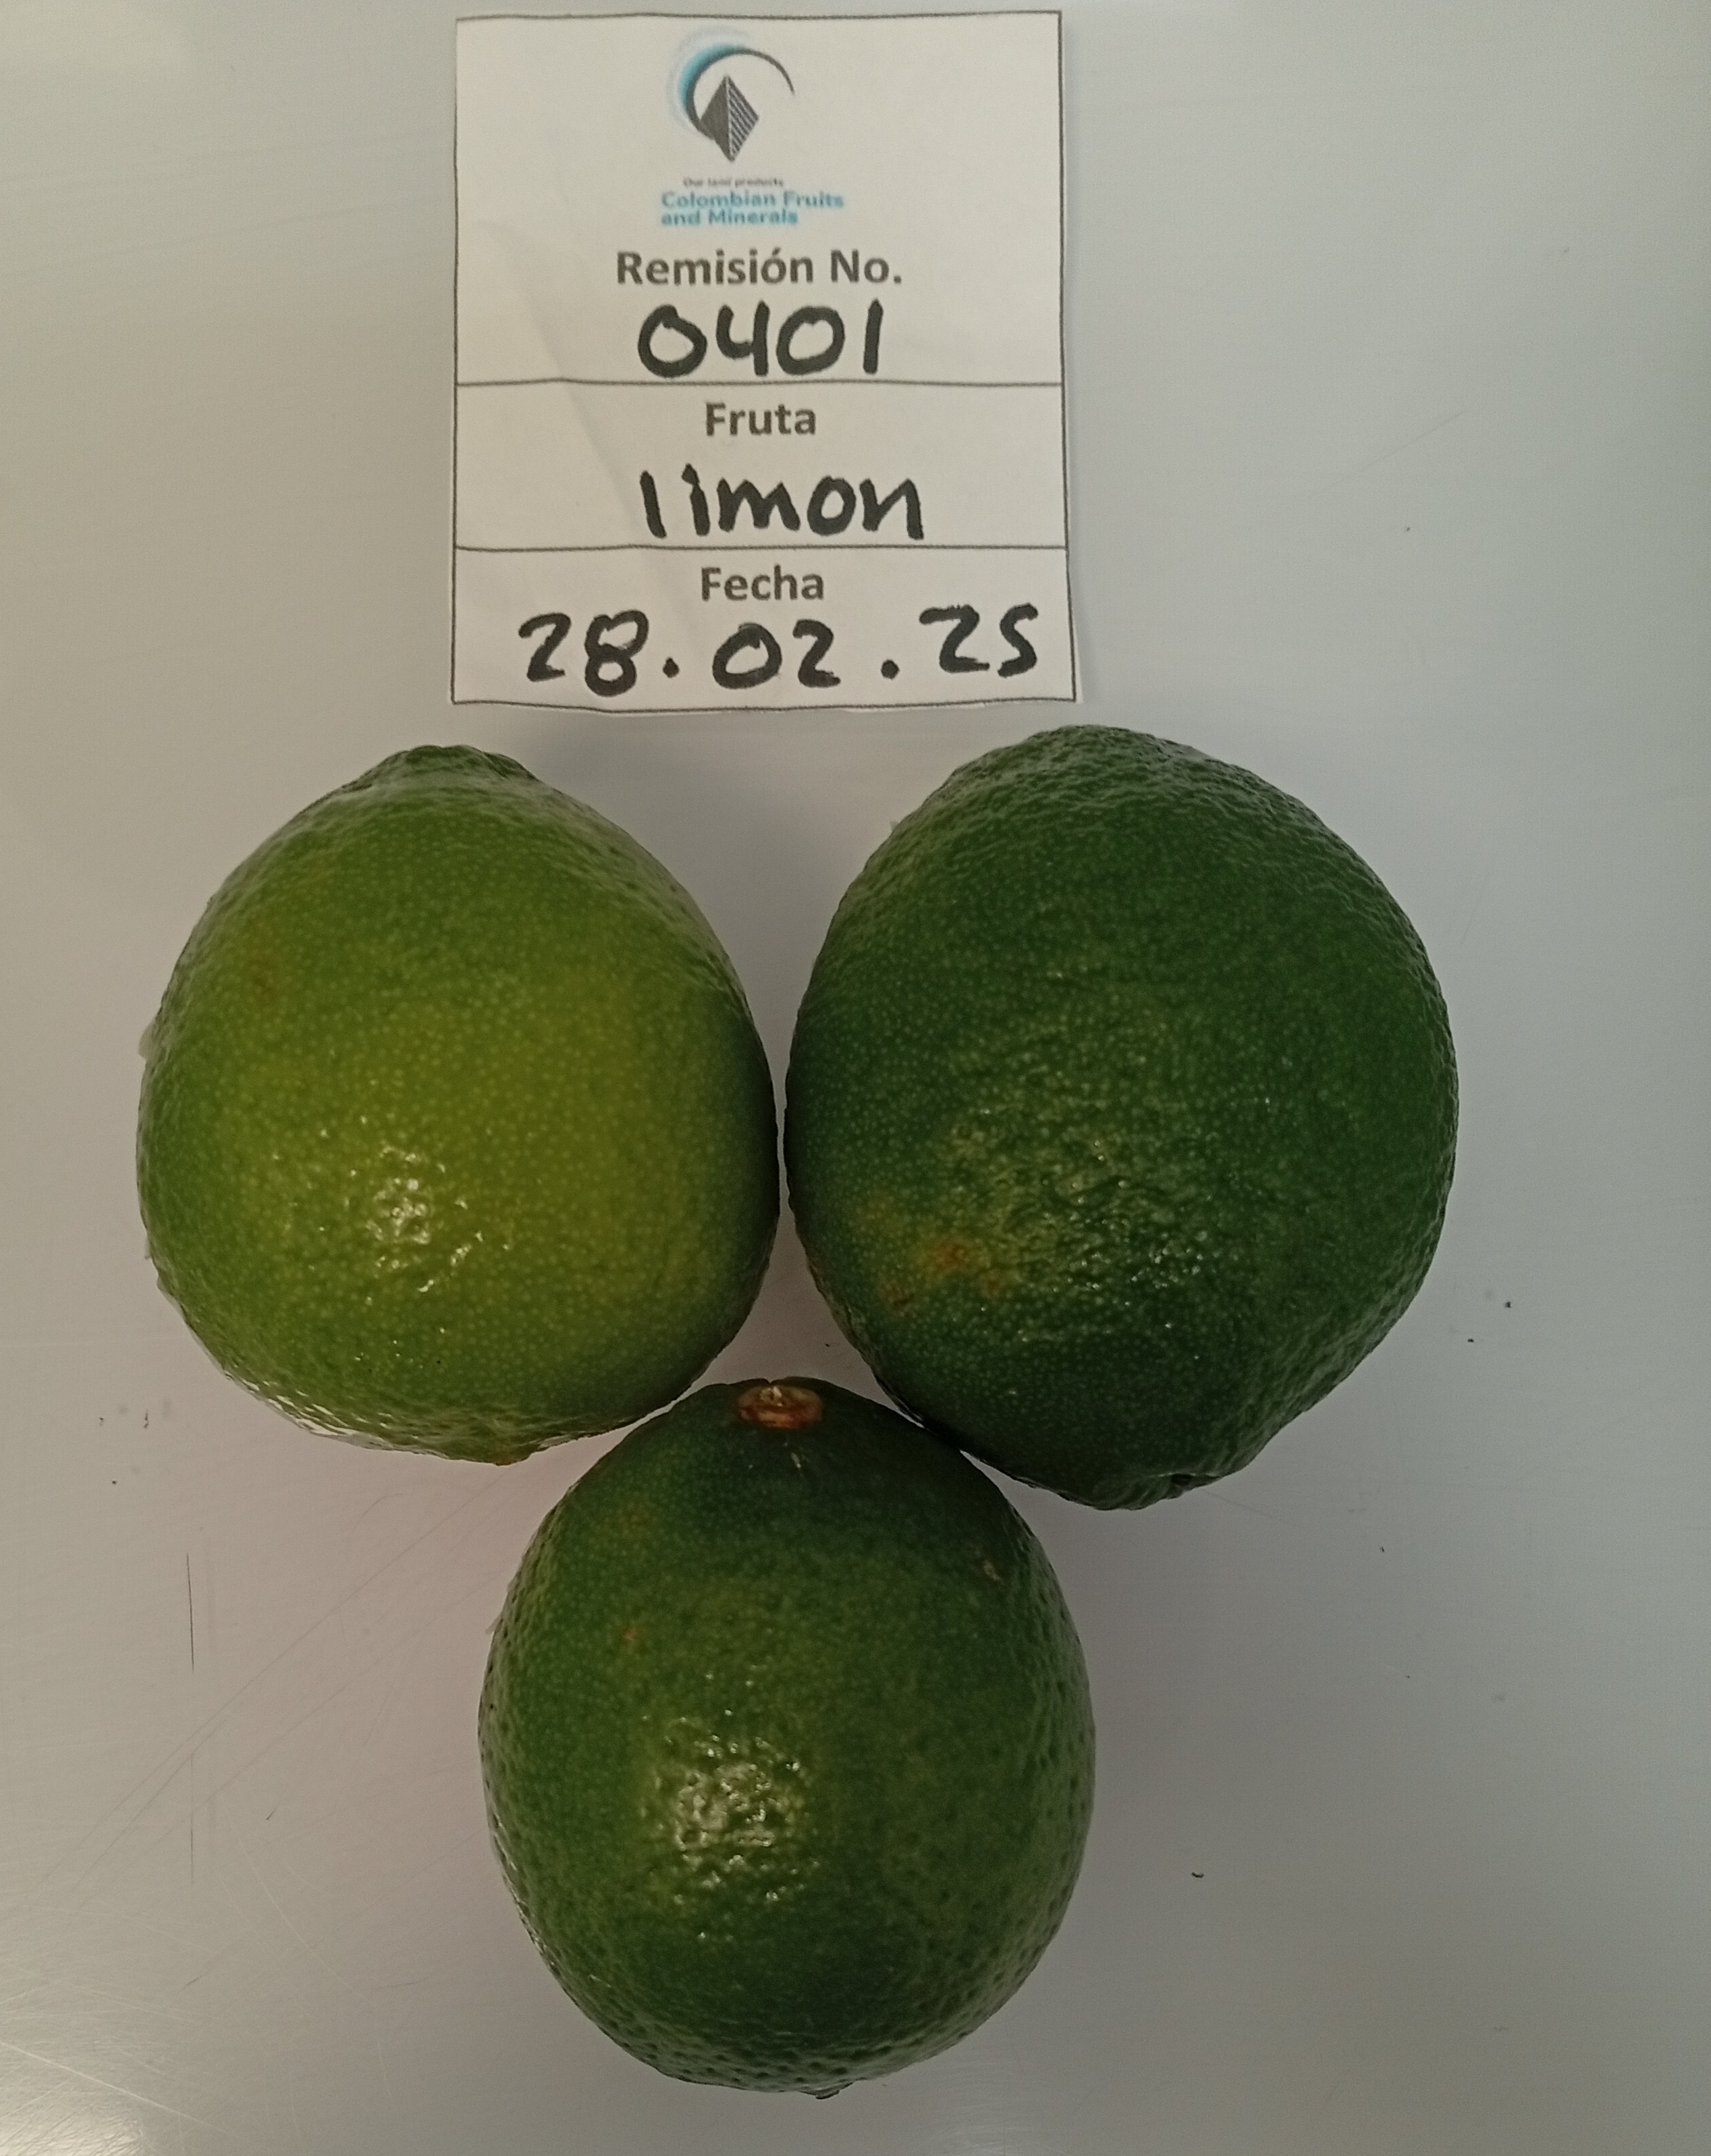 Our land products
Colombian Fruits
and Minerals
Remisión No.
0401
Fruta
limon
Fecha
28.02.25